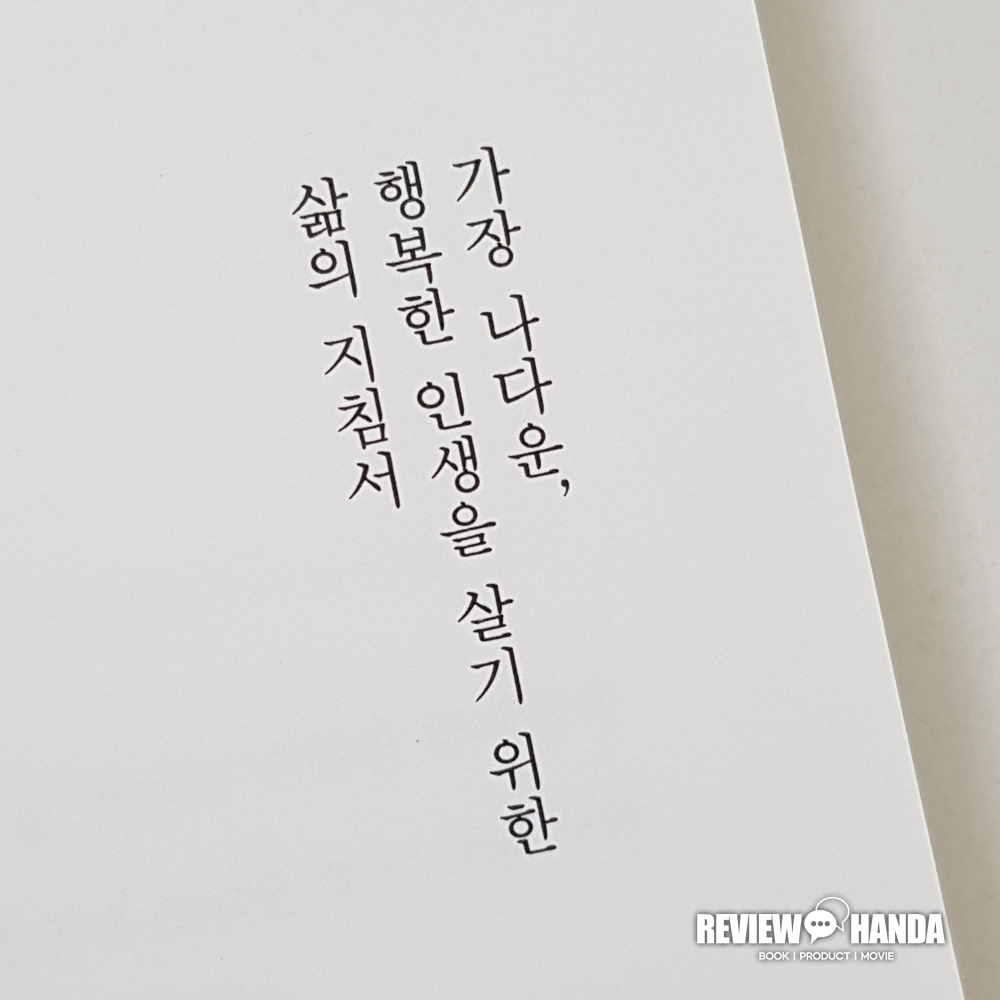 가장 나다운,
행복한 인생을 살기 위한
삶의 지침서
REVIEW HANDA
BOOK | PRODUCT | MOVIE